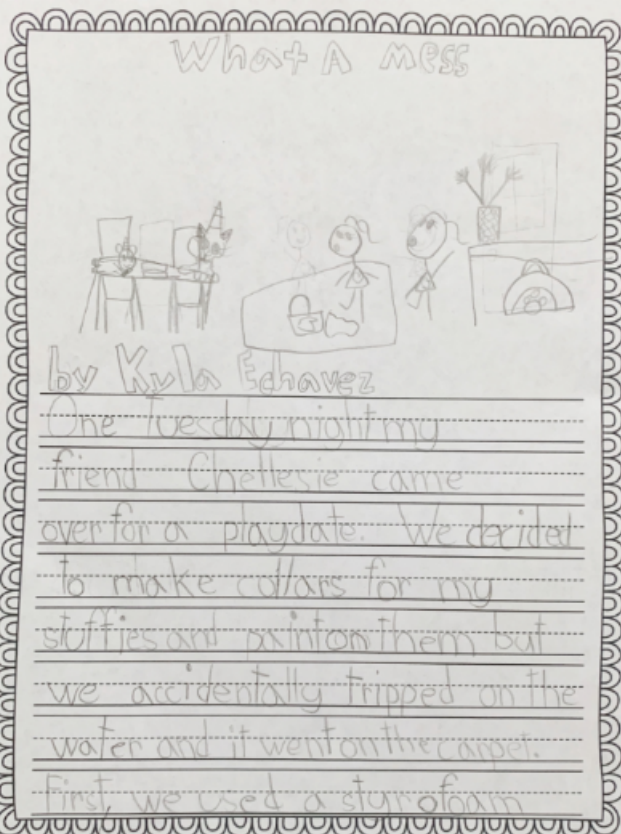 What A Mess
by Kyla Echavez
One Tuesday night my
friend Chellesie came
over for a playdate. We decided
to make collars for my
stuffies and paint on them but
we accidentally tripped on the
water and it went on the carpet.
First, we used a styrofoam